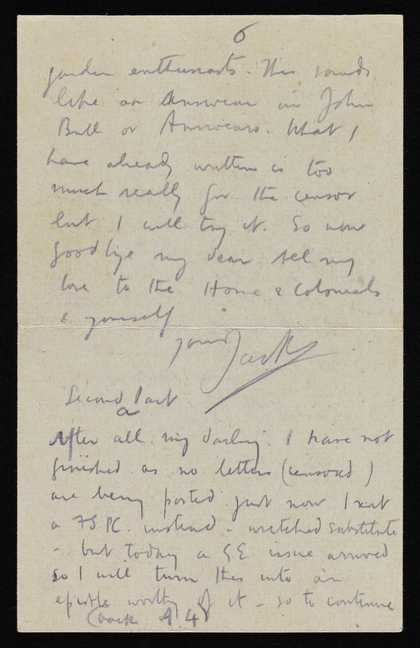 6
garden enthusiasts. This sounds
like an answer in John
Bull or Answers. What I
have already written is too
much really for the censor
but I will try it. So now
goodbye my dear All my
love to the Home & Colonials
& yourself
yours Jack
Second Part
After all my darling I have not
finished as no letters (censored)
are being posted just now I sent
a FSPC instead - wretched substitute
- but today a GE issue arrived
so I will turn this into an
epistle worthy of it - so to continue
(back of 4